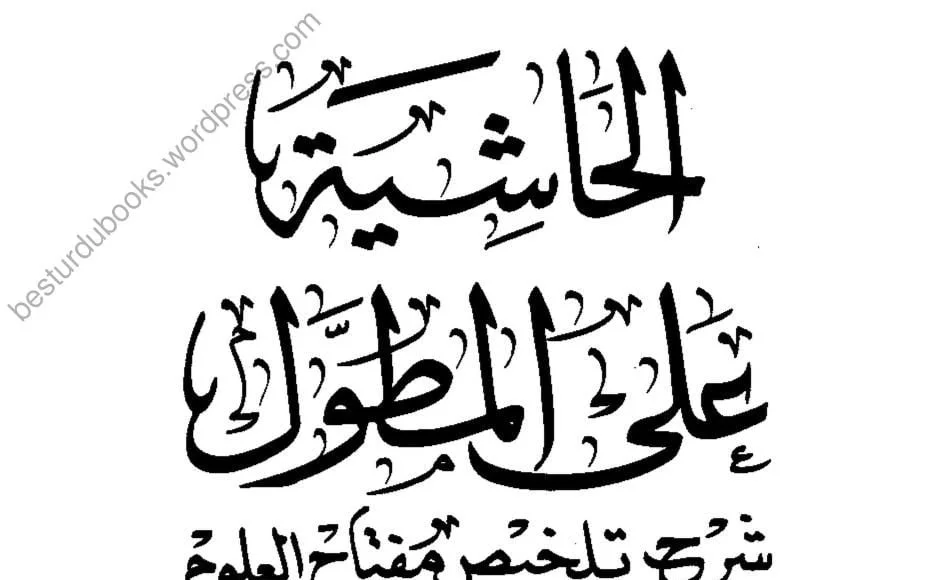 besturdubooks.wordpress.com
الحَاشِيَة
عَلى المطوَّل
شرح تلخيص مفتاح العلوم